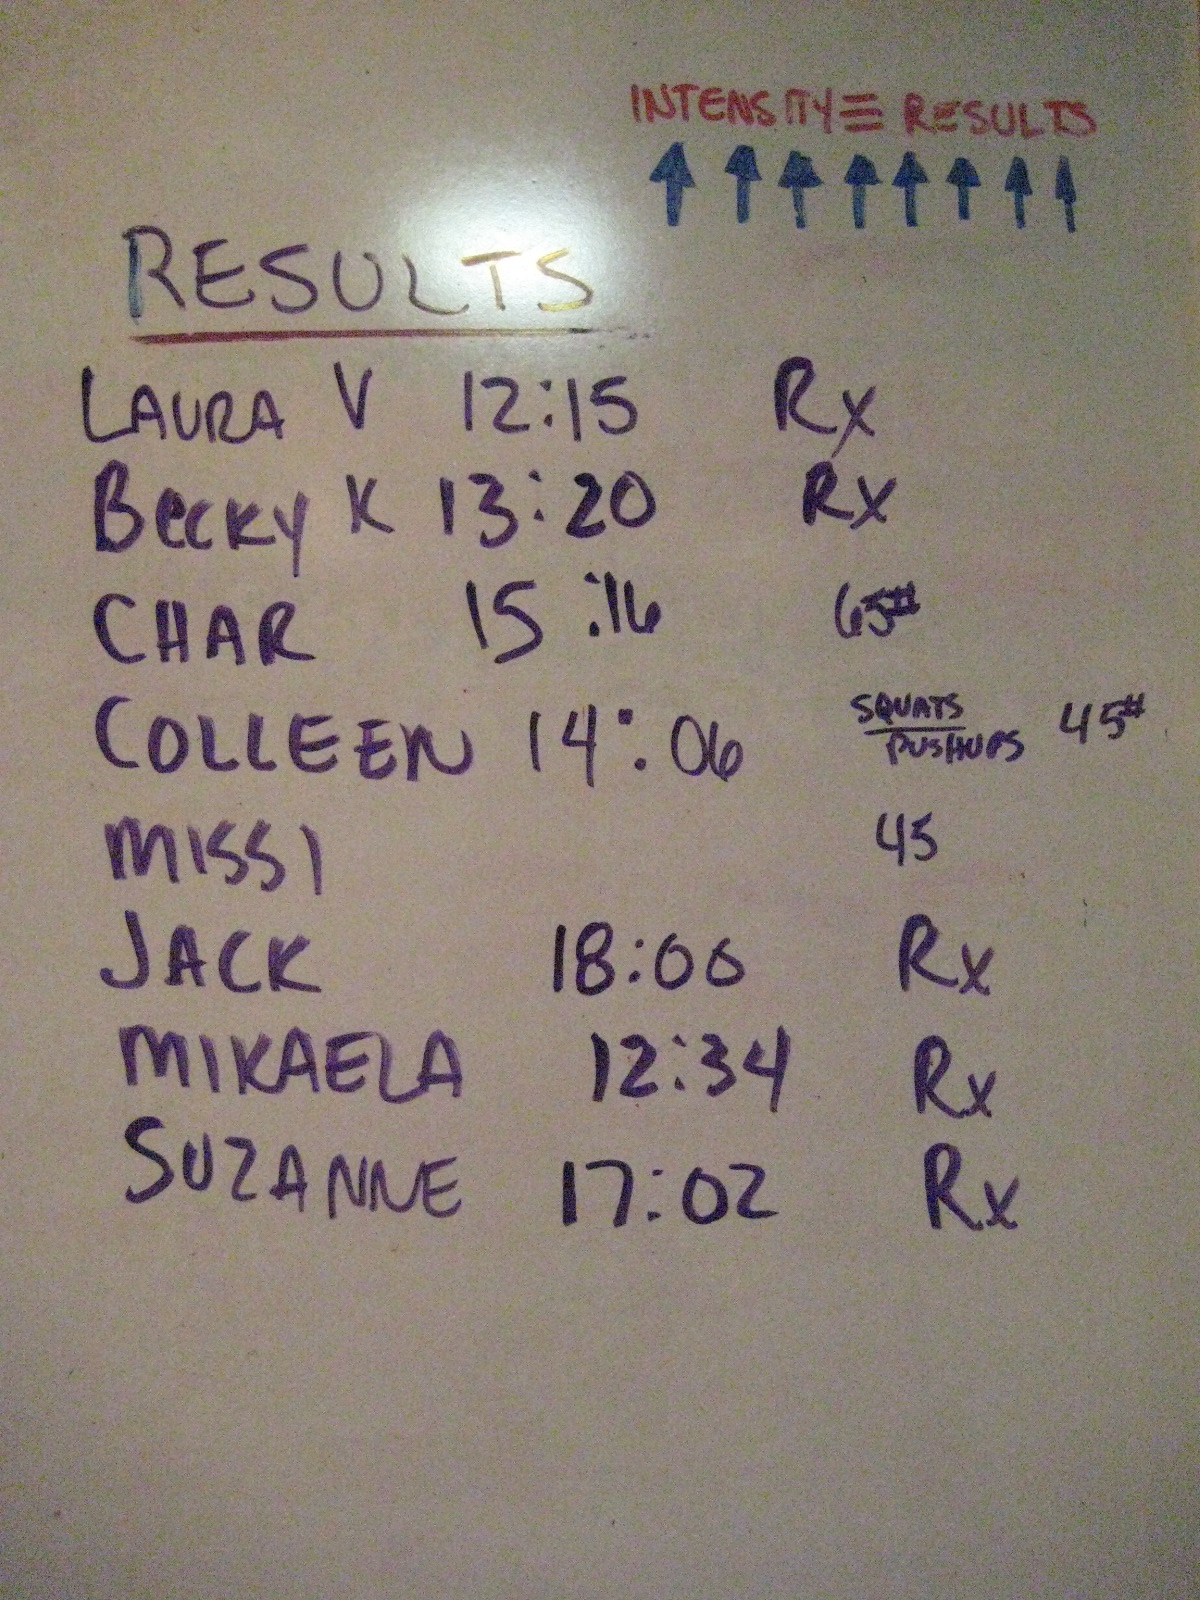 INTENSITY ≡ RESULTS
RESULTS
LAURA V 12:15 Rx
BECKY K 13:20 Rx
CHAR 15:16 65#
COLLEEN 14:06 SQUATS 45#
PUSHUPS
MISSI 45
JACK 18:00 Rx
MIKAELA 12:34 Rx
SUZANNE 17:02 Rx